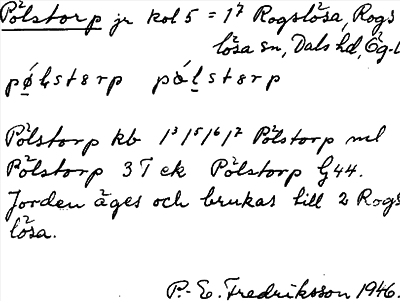 Pålstorp jr kol 5 = 1² Rogslösa, Rogs
lösa sn, Dals hd, Ög-l
pǿlstɛrp pålstɛrp
Pålstorp kb 1³/1⁵/1⁶/1² Pålstorp ml
Pålstorp 3 T ek Pålstorp G44.
Jorden äges och brukas till 2 Rogs
lösa.
P.-E. Fredriksson 1946.